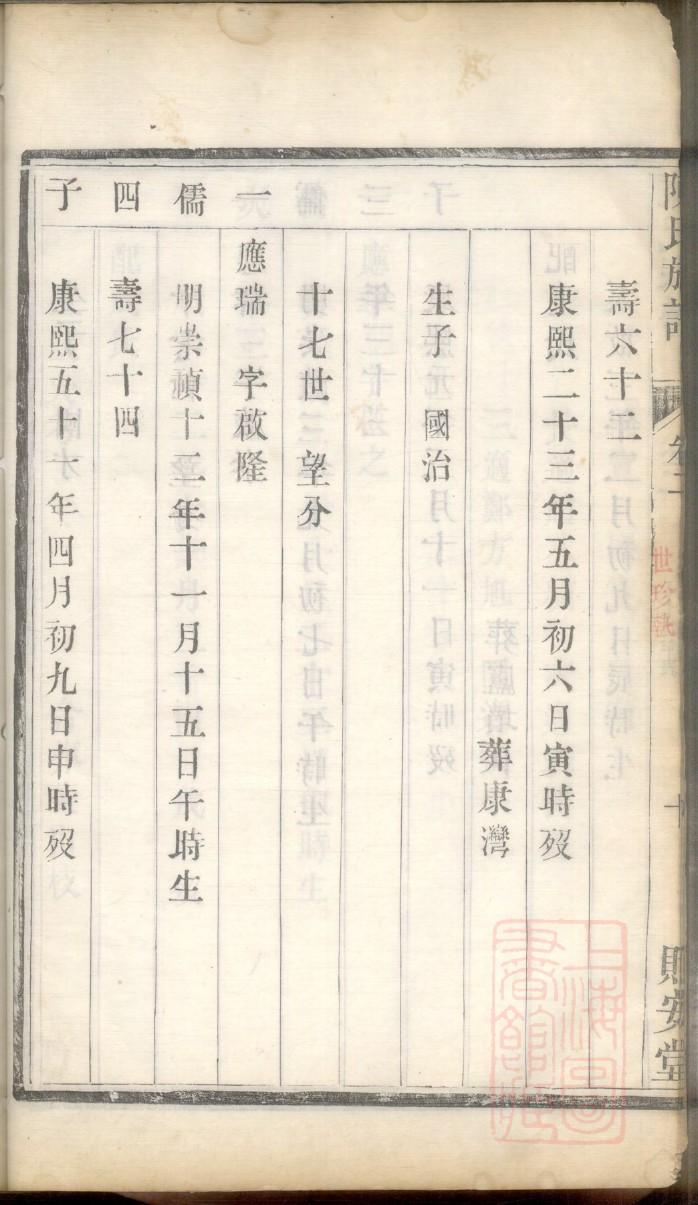 陳氏族譜
卷二
世珍執
十
貽安堂
壽六十二
康熙二十三年五月初六日寅時歿
葬康灣
生子 國治
十七世三望分
一 應瑞 字啟隆
儒 明崇禎十二年十一月十五日午時生
四 壽七十四
子 康熙五十一年四月初九日申時歿
上海圖書館藏